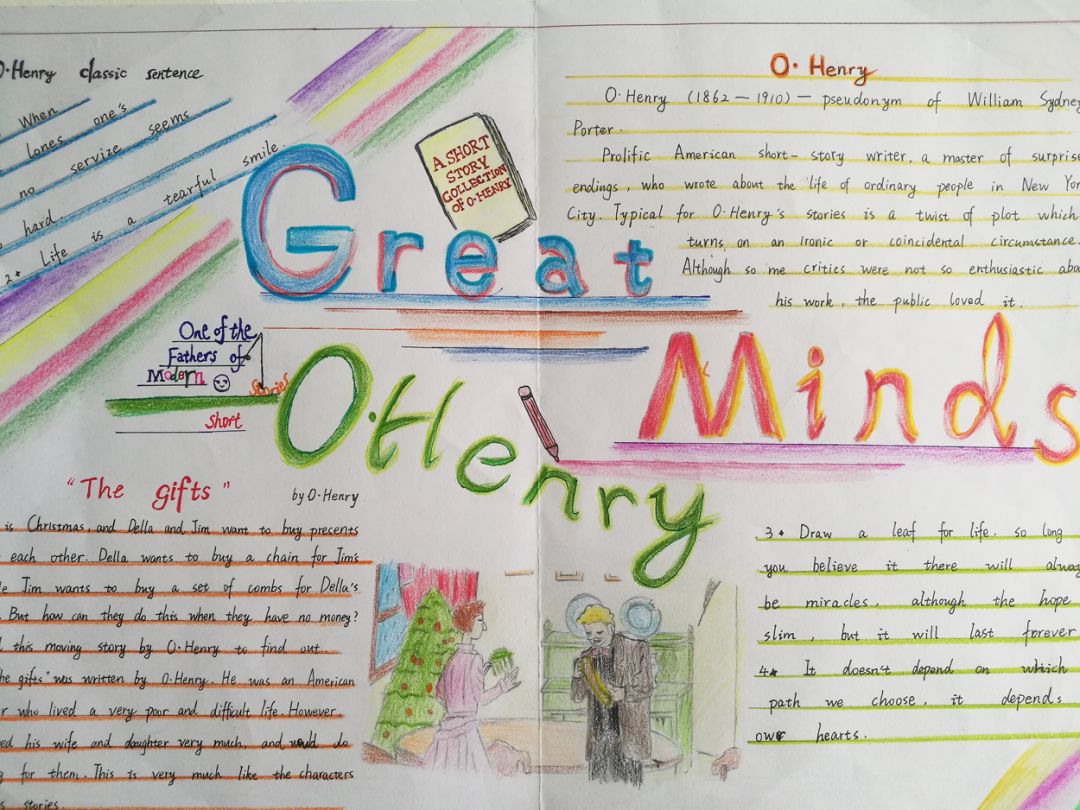 O·Henry classic sentence
When
loves one's
no servize seems
hard.
2. Life is a tearful smile.
A SHORT
STORY
COLLECTION
OF O·HENRY
Great
Minds
O·Henry
One of the
Fathers of
Modern
Short
Stories
O·Henry
O·Henry (1862-1910)- pseudonym of William Sydney
Porter.
Prolific American short-story writer, a master of surprise
endings, who wrote about the life of ordinary people in New
City. Typical for O·Henry's stories is a twist of plot which
turns on an ironic or coincidental circumstance
Although some critics were not so enthusiastic
his work, the public loved it.
"The gifts"
by O·Henry
is Christmas, and Della and Jim want to buy presents
each other. Della wants to buy a chain for Jim's
Jim wants to buy a set of combs for Della's
But how can they do this when they have no money?
this moving story by O·Henry to find out.
gifts" was written by O·Henry. He was an American
who lived a very poor and difficult life. However,
his wife and daughter very much, and would do
for them. This is very much like the characters
stories.
3. Draw a leaf for life. so long
you believe it there will
be miracles, although the hope
slim, but it will last forever
4. It doesn't depend on which
path we choose, it depends
our hearts.